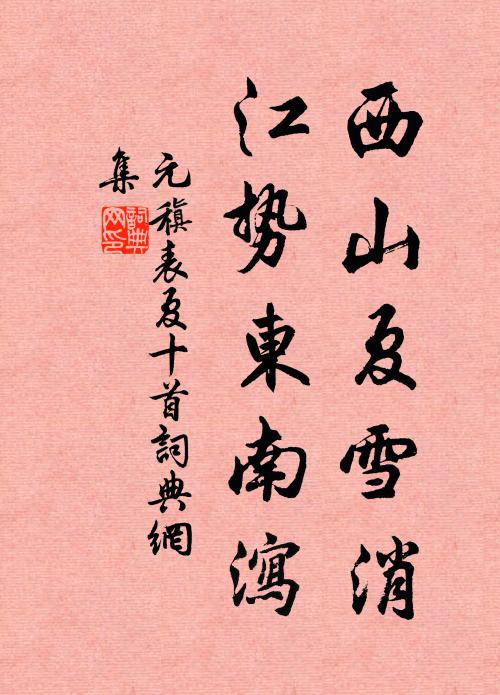 西山夏雪消
江势東南瀉
元稹表夏十首詞典網
集
詞典
网印